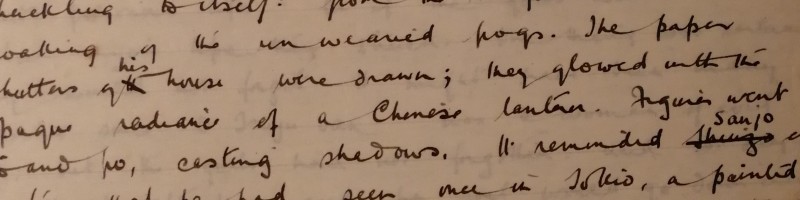 to itself. from the
of the unwearied frogs. The paper
of his house were drawn; they glowed with the
radiance of a Chinese lantern. Figures went
and fro, casting shadows. It reminded Sanjo
he had seen once in Tokio, a painted